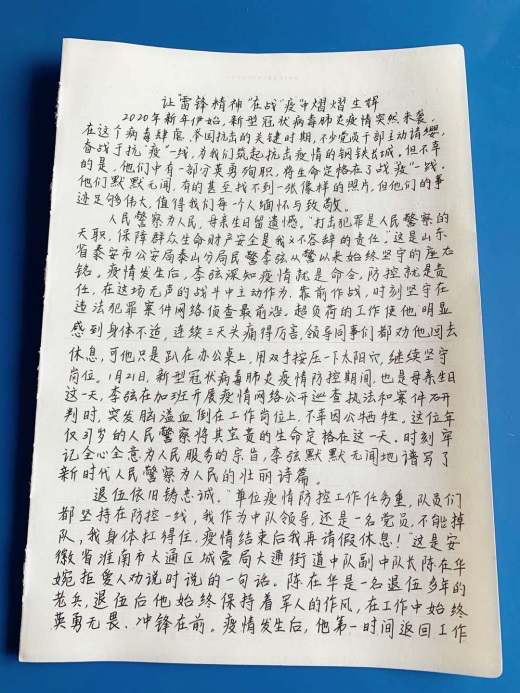 让“雷锋精神”在战“疫”中熠熠生辉
2020年新年伊始,新型冠状病毒肺炎疫情突然来袭。
在这个病毒肆虐、举国抗击的关键时期,不少党员干部主动请缨,
奋战于抗“疫”一线,为我们筑起抗击疫情的钢铁长城。但不幸
的是,他们中有一部分英勇殉职,将生命定格在了战“疫”一线。
他们默默无闻,有的甚至找不到一张像样的照片,但他们的事
迹足够伟大,值得我们每一个人缅怀与致敬。
人民警察为人民,母亲生日留遗憾。“打击犯罪是人民警察的
天职,保障群众生命财产安全是我义不容辞的责任。”这是山东
省泰安市公安局泰山分局民警李弦从警以来始终坚守的座右
铭。疫情发生后,李弦深知疫情就是命令,防控就是责
任,在这场无声的战斗中主动作为、靠前作战,时刻坚守在
违法犯罪案件网络侦查最前沿。超负荷的工作使他明显
感到身体不适,连续三天头痛得厉害,领导同事们都劝他回去
休息,可他只是趴在办公桌上,用双手按压一下太阳穴,继续坚守
岗位。1月21日,新型冠状病毒肺炎疫情防控期间,也是母亲生日
这一天,李弦在加班开展疫情网络公开巡查执法和案件研
判时,突发脑溢血倒在工作岗位上,不幸因公牺牲。这位年
仅37岁的人民警察将其宝贵的生命定格在这一天。时刻牢
记全心全意为人民服务的宗旨,李弦默默无闻地谱写了
新时代人民警察为人民的壮丽诗篇。
退伍依旧铸忠诚。“单位疫情防控工作任务重,队员们
都坚持在防控一线,我作为中队领导,还是一名党员,不能掉
队,我身体扛得住,疫情结束后我再请假休息!”这是安
徽省淮南市大通区城管局大通街道中队副中队长陈在华
婉拒爱人劝说时说的一句话。陈在华是一名退伍多年的
老兵,退伍后他始终保持着军人的作风,在工作中始终
英勇无畏、冲锋在前。疫情发生后,他第一时间返回工作